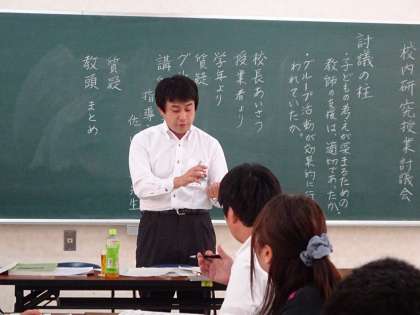 校内研究授業討議会
討議の柱
・子どもの考えが深まるための
教師の支援は、適切であったか。
・グループ活動が効果的に行
われていたか。
校長あいさつ
授業者より
学年より
質疑
グル
講
指導
佐
生
質疑
教頭 まとめ